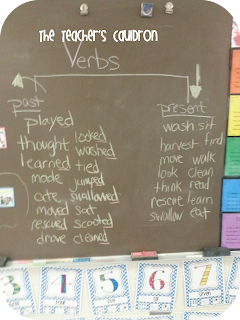 The Teacher's Cauldron
Verbs
past
played
thought
learned
made
ate
moved
rescued
drove
looked
washed
tied
jumped
swallowed
sat
scooted
cleaned
present
wash sit
harvest find
move walk
look clean
think read
rescue learn
swallow eat
3
4
5
6
7